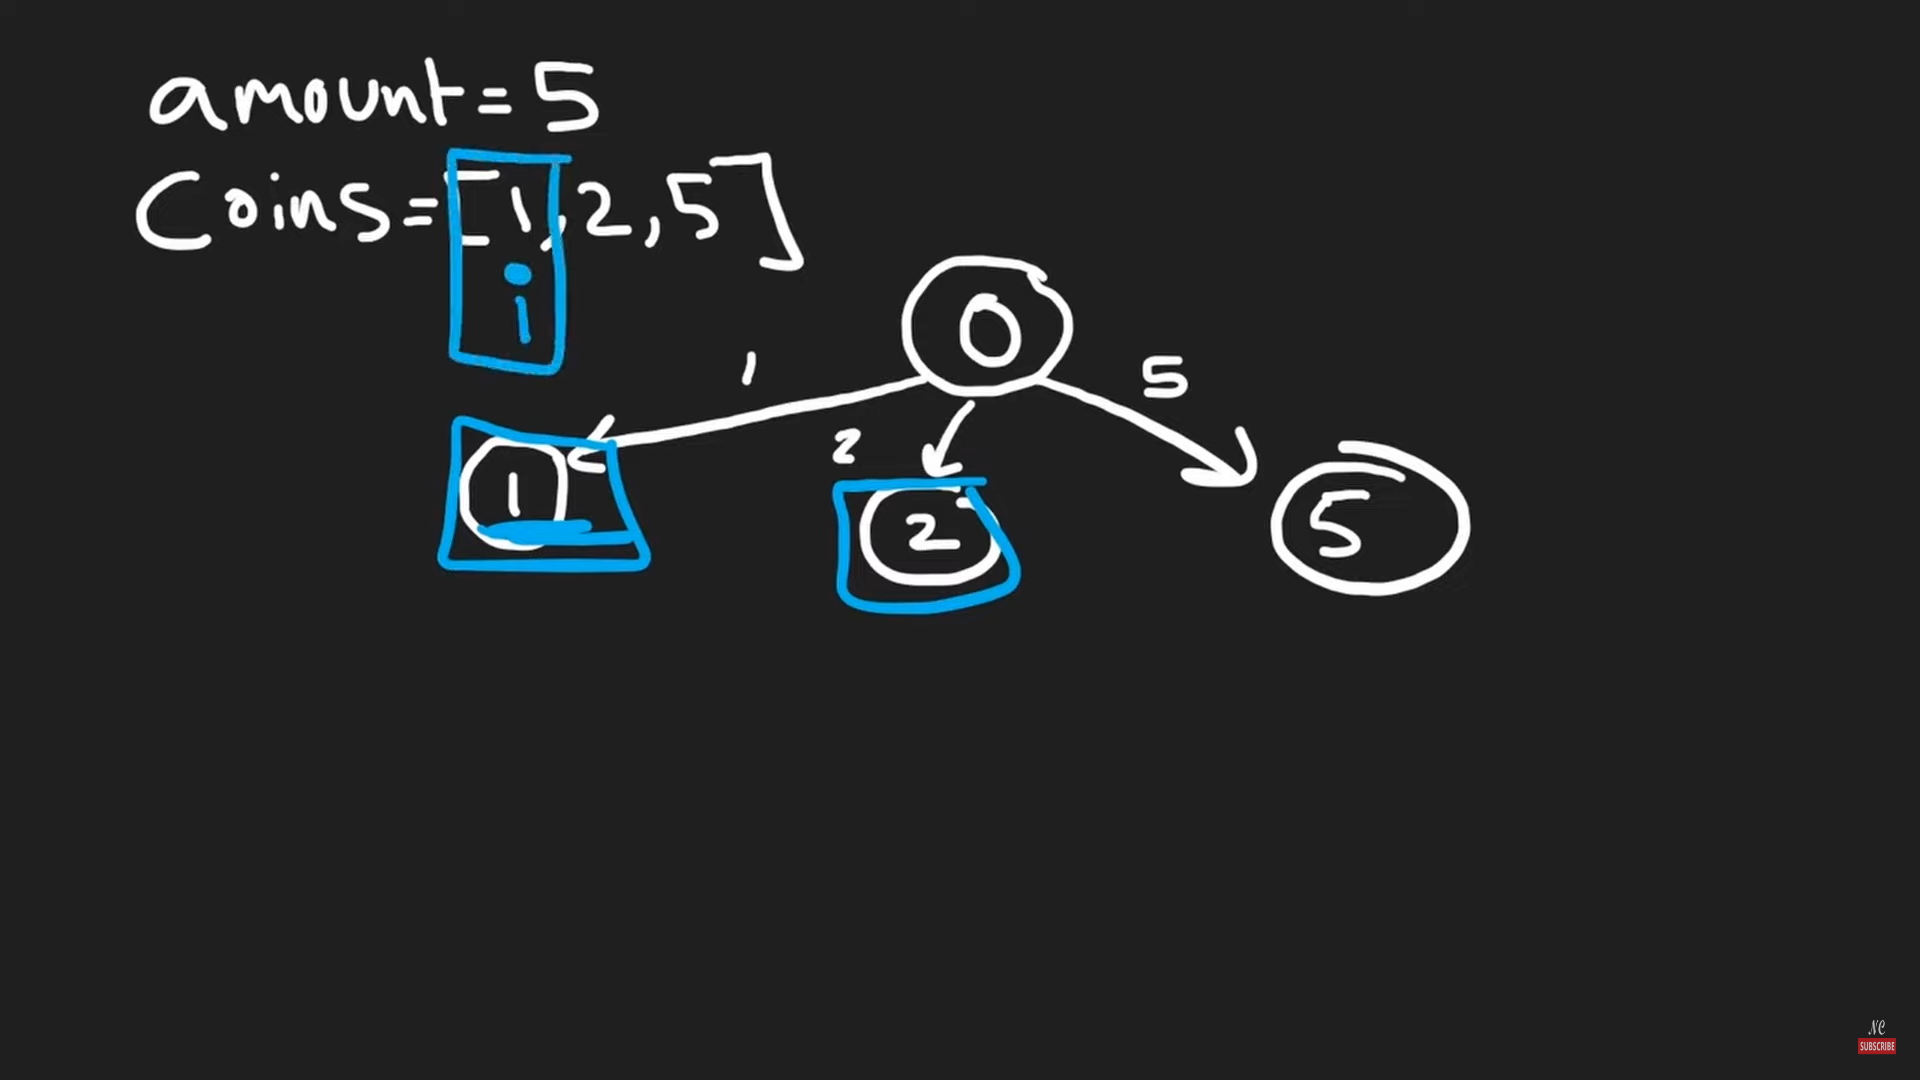 amount=5
Coins=[1,2,5]
i
0
1
5
2
1
2
5
NC
SUBSCRIBE